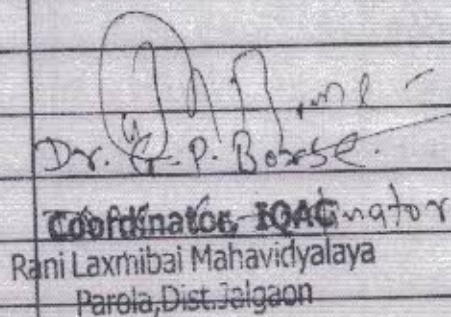 Dr. G. P. Borse.
Coordinator, IQAC
Rani Laxmibai Mahavidyalaya
Parola,Dist.Jalgaon